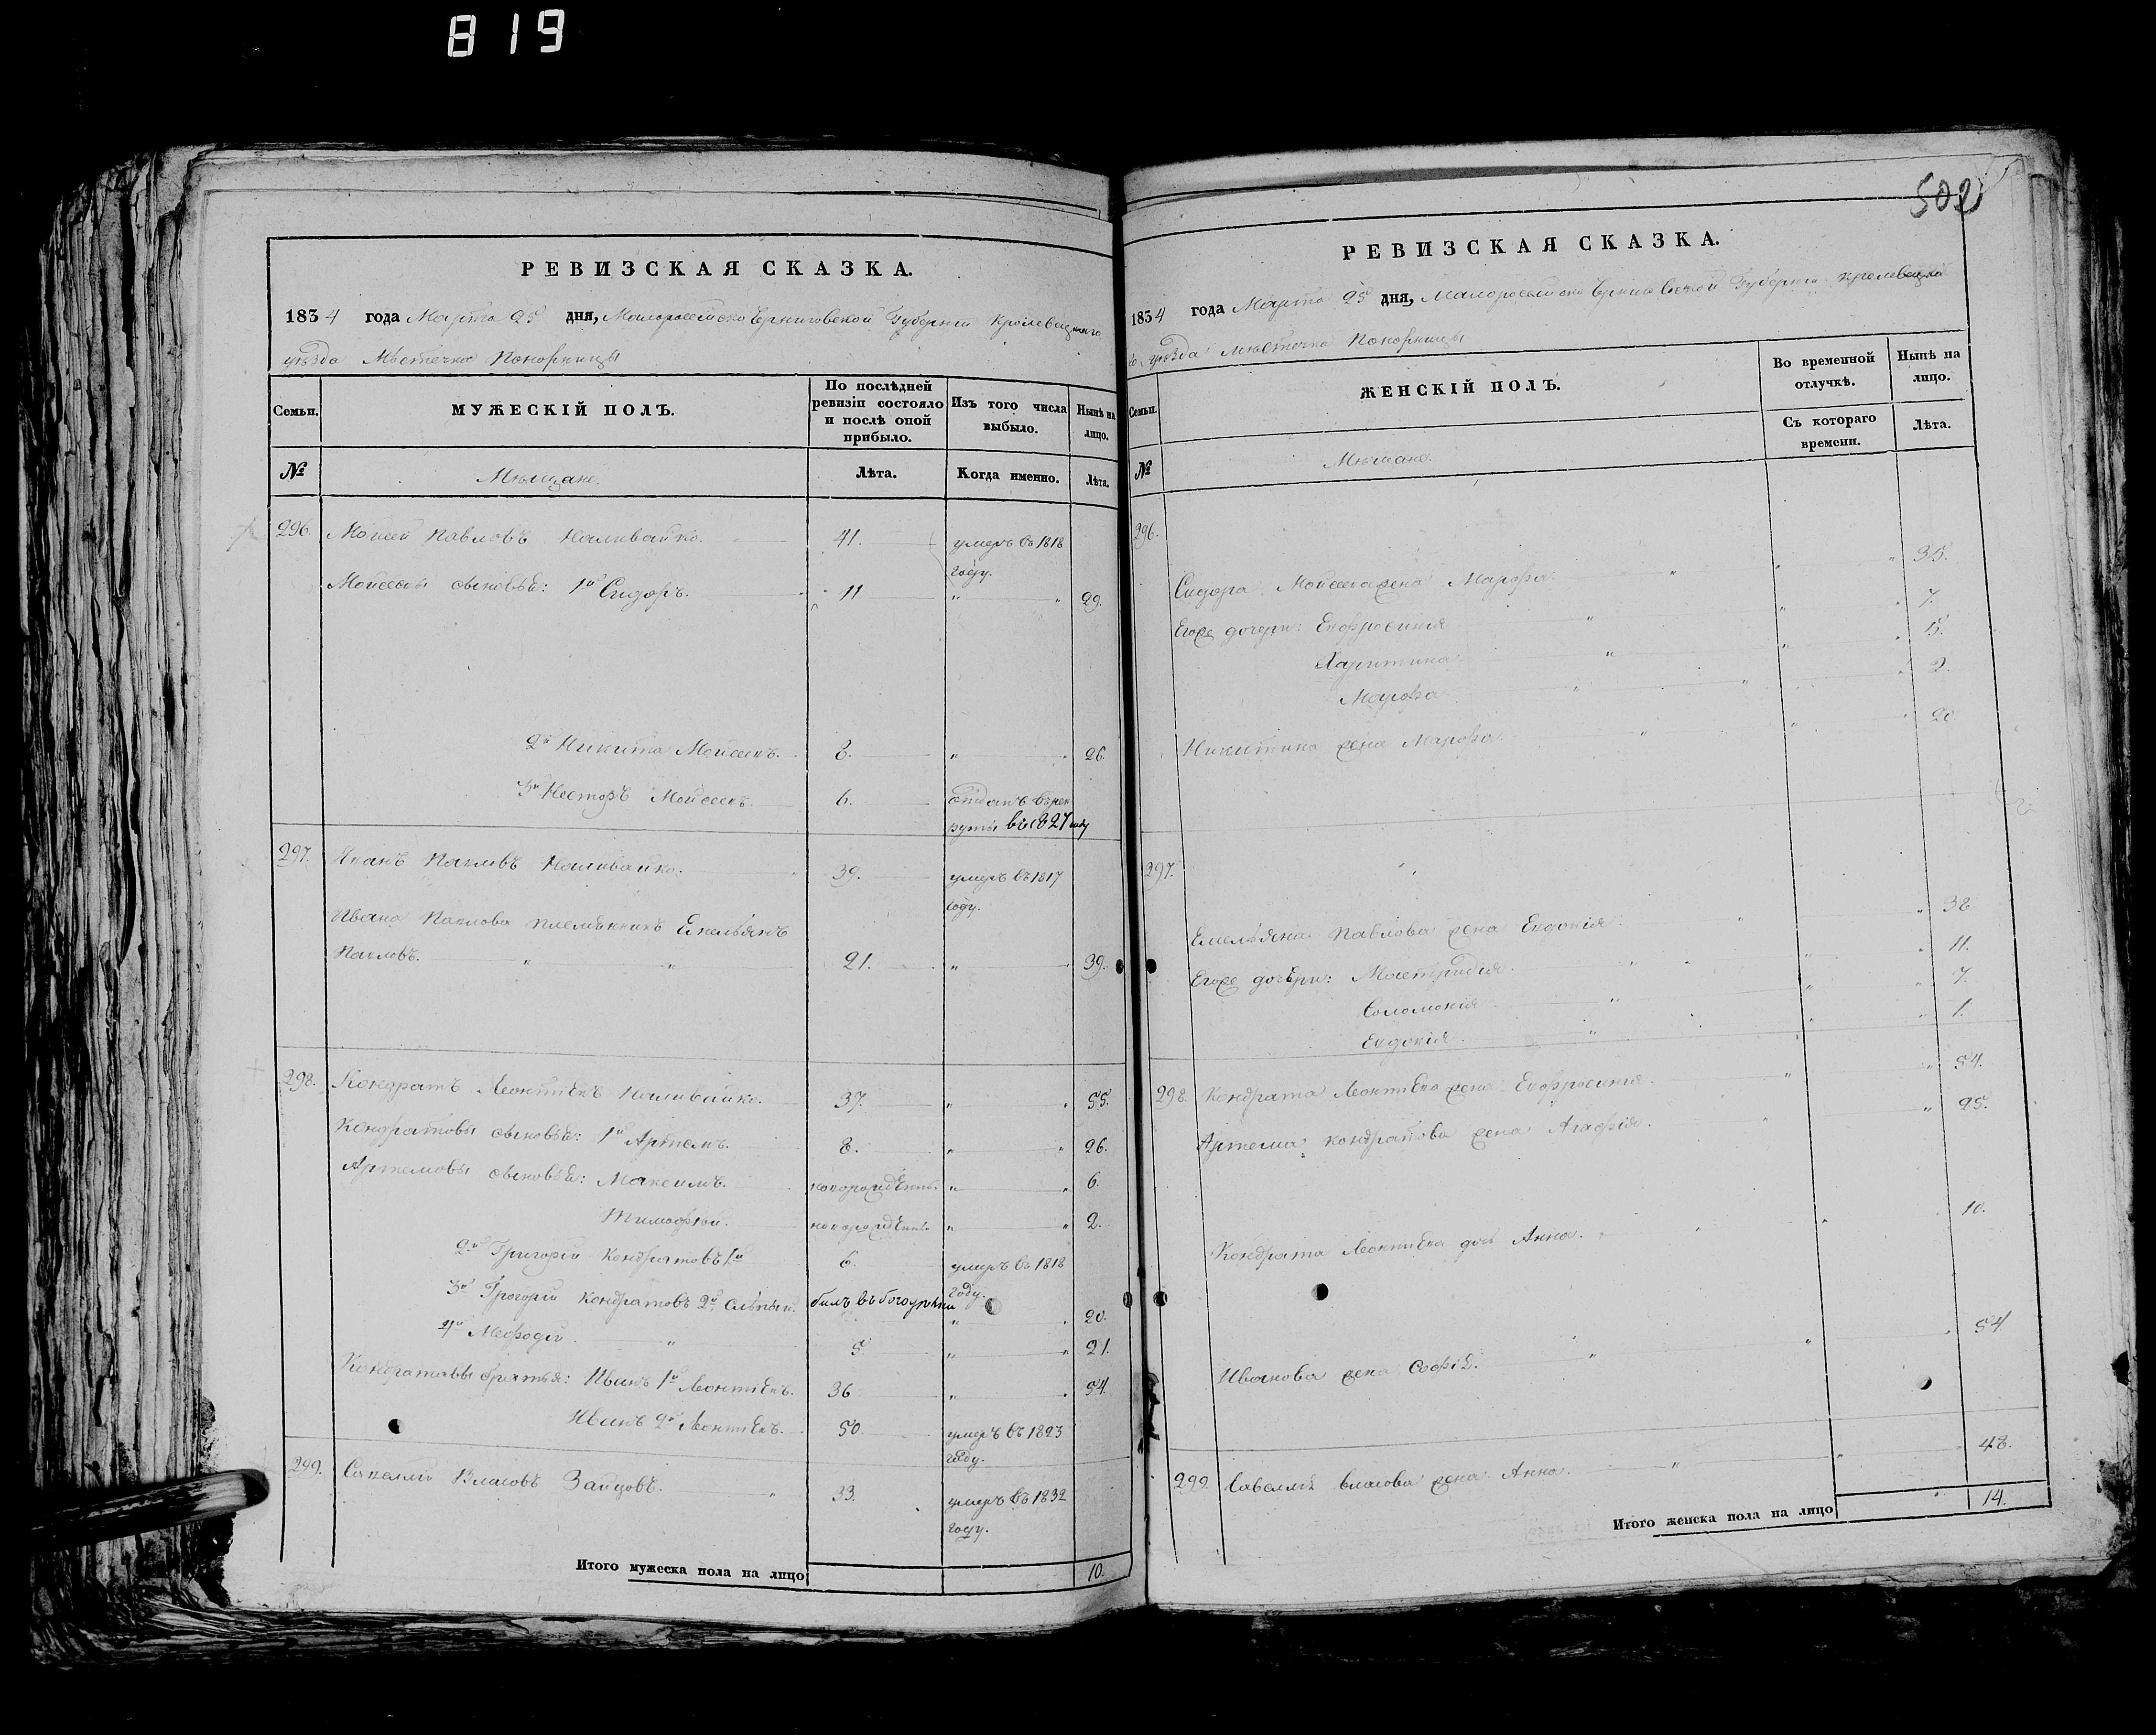 819
502
РЕВИЗСКАЯ СКАЗКА.
1834 года Марта 25 дня, Малороссийско Черниговской Губернии Кролевецкаго
уѣзда Мѣстечка Понорницы
Семьи.
МУЖЕСКІЙ ПОЛЪ.
По послѣдней ревизіи состояло и послѣ оной прибыло.
Изъ того числа выбыло.
Нынѣ на лицо.
№
Мѣщане.
Лѣта.
Когда именно.
Лѣта.
296. Моисей Павловъ Наливайко. 41. умеръ въ 1818
году.
Мойсеевы сыновья: 1й Сидоръ. 11 " " 29.
2й Никита Мойсеевъ. 8. " " 26.
3й Несторъ Мойсеевъ 6. отданъ въ рек
руты въ 1827 году
297. Иванъ Павловъ Наливайко. 39. умеръ въ 1817
году.
Ивана Павлова племянникъ Емельянъ
Павловъ. " " 21. " 39.
298. Кондратъ Леонтіевъ Наливайко. 37. " " 55.
Кондратовы сыновья: 1й Артемъ. 8. " " 26.
Артемовы сыновья: Максимъ. новорожденъ " " 6.
Тимофей. новорожденъ " " 2.
2й Григорій Кондратовъ 1й 6. умеръ въ 1818
году.
3й Григорій Кондратовъ 2й слѣпый. " 20.
4й Мефодій " 5 " " 21.
Кондратовы братья: Иванъ 1й Леонтіевъ. 36 " " 54.
Иванъ 2й Леонтіевъ. 50 умеръ въ 1823
году.
299. Савелій Власовъ Зайцовъ. " 33. умеръ въ 1832
году.
Итого мужеска пола на лицо 10.
РЕВИЗСКАЯ СКАЗКА.
1834 года Марта 25 дня, Малороссійско Черниговской Губерніи Кролевецка
го уѣзда мѣстечка Понорницы
Семьи.
ЖЕНСКІЙ ПОЛЪ.
Во временной отлучкѣ.
Нынѣ на лицо.
Съ котораго времени.
Лѣта.
№
Мѣщане.
296.
Сидора Мойсеева жена Марфа " " " 35.
Егоже дочери: Евфросинія " " " 7.
Харитина " " " 5.
Марфа " " " 2.
Никитина жена Марфа " " " 20
297.
Емельяна Павлова жена Евдокія " " 38
Егоже дочери: Мастридія " " 11.
Соломонія " " " 7.
Евдокія " " " 1.
298. Кондрата Леонтіева жена Евфросинія. " " 54.
Артема Кондратова жена Агафія. " " 25.
Кондрата Леонтіева дочь Анна. " " 10.
Иванова жена Софія. " " " 54
299. Савелія Власова жена Анна. " " 48.
Итого женска пола на лицо 14.